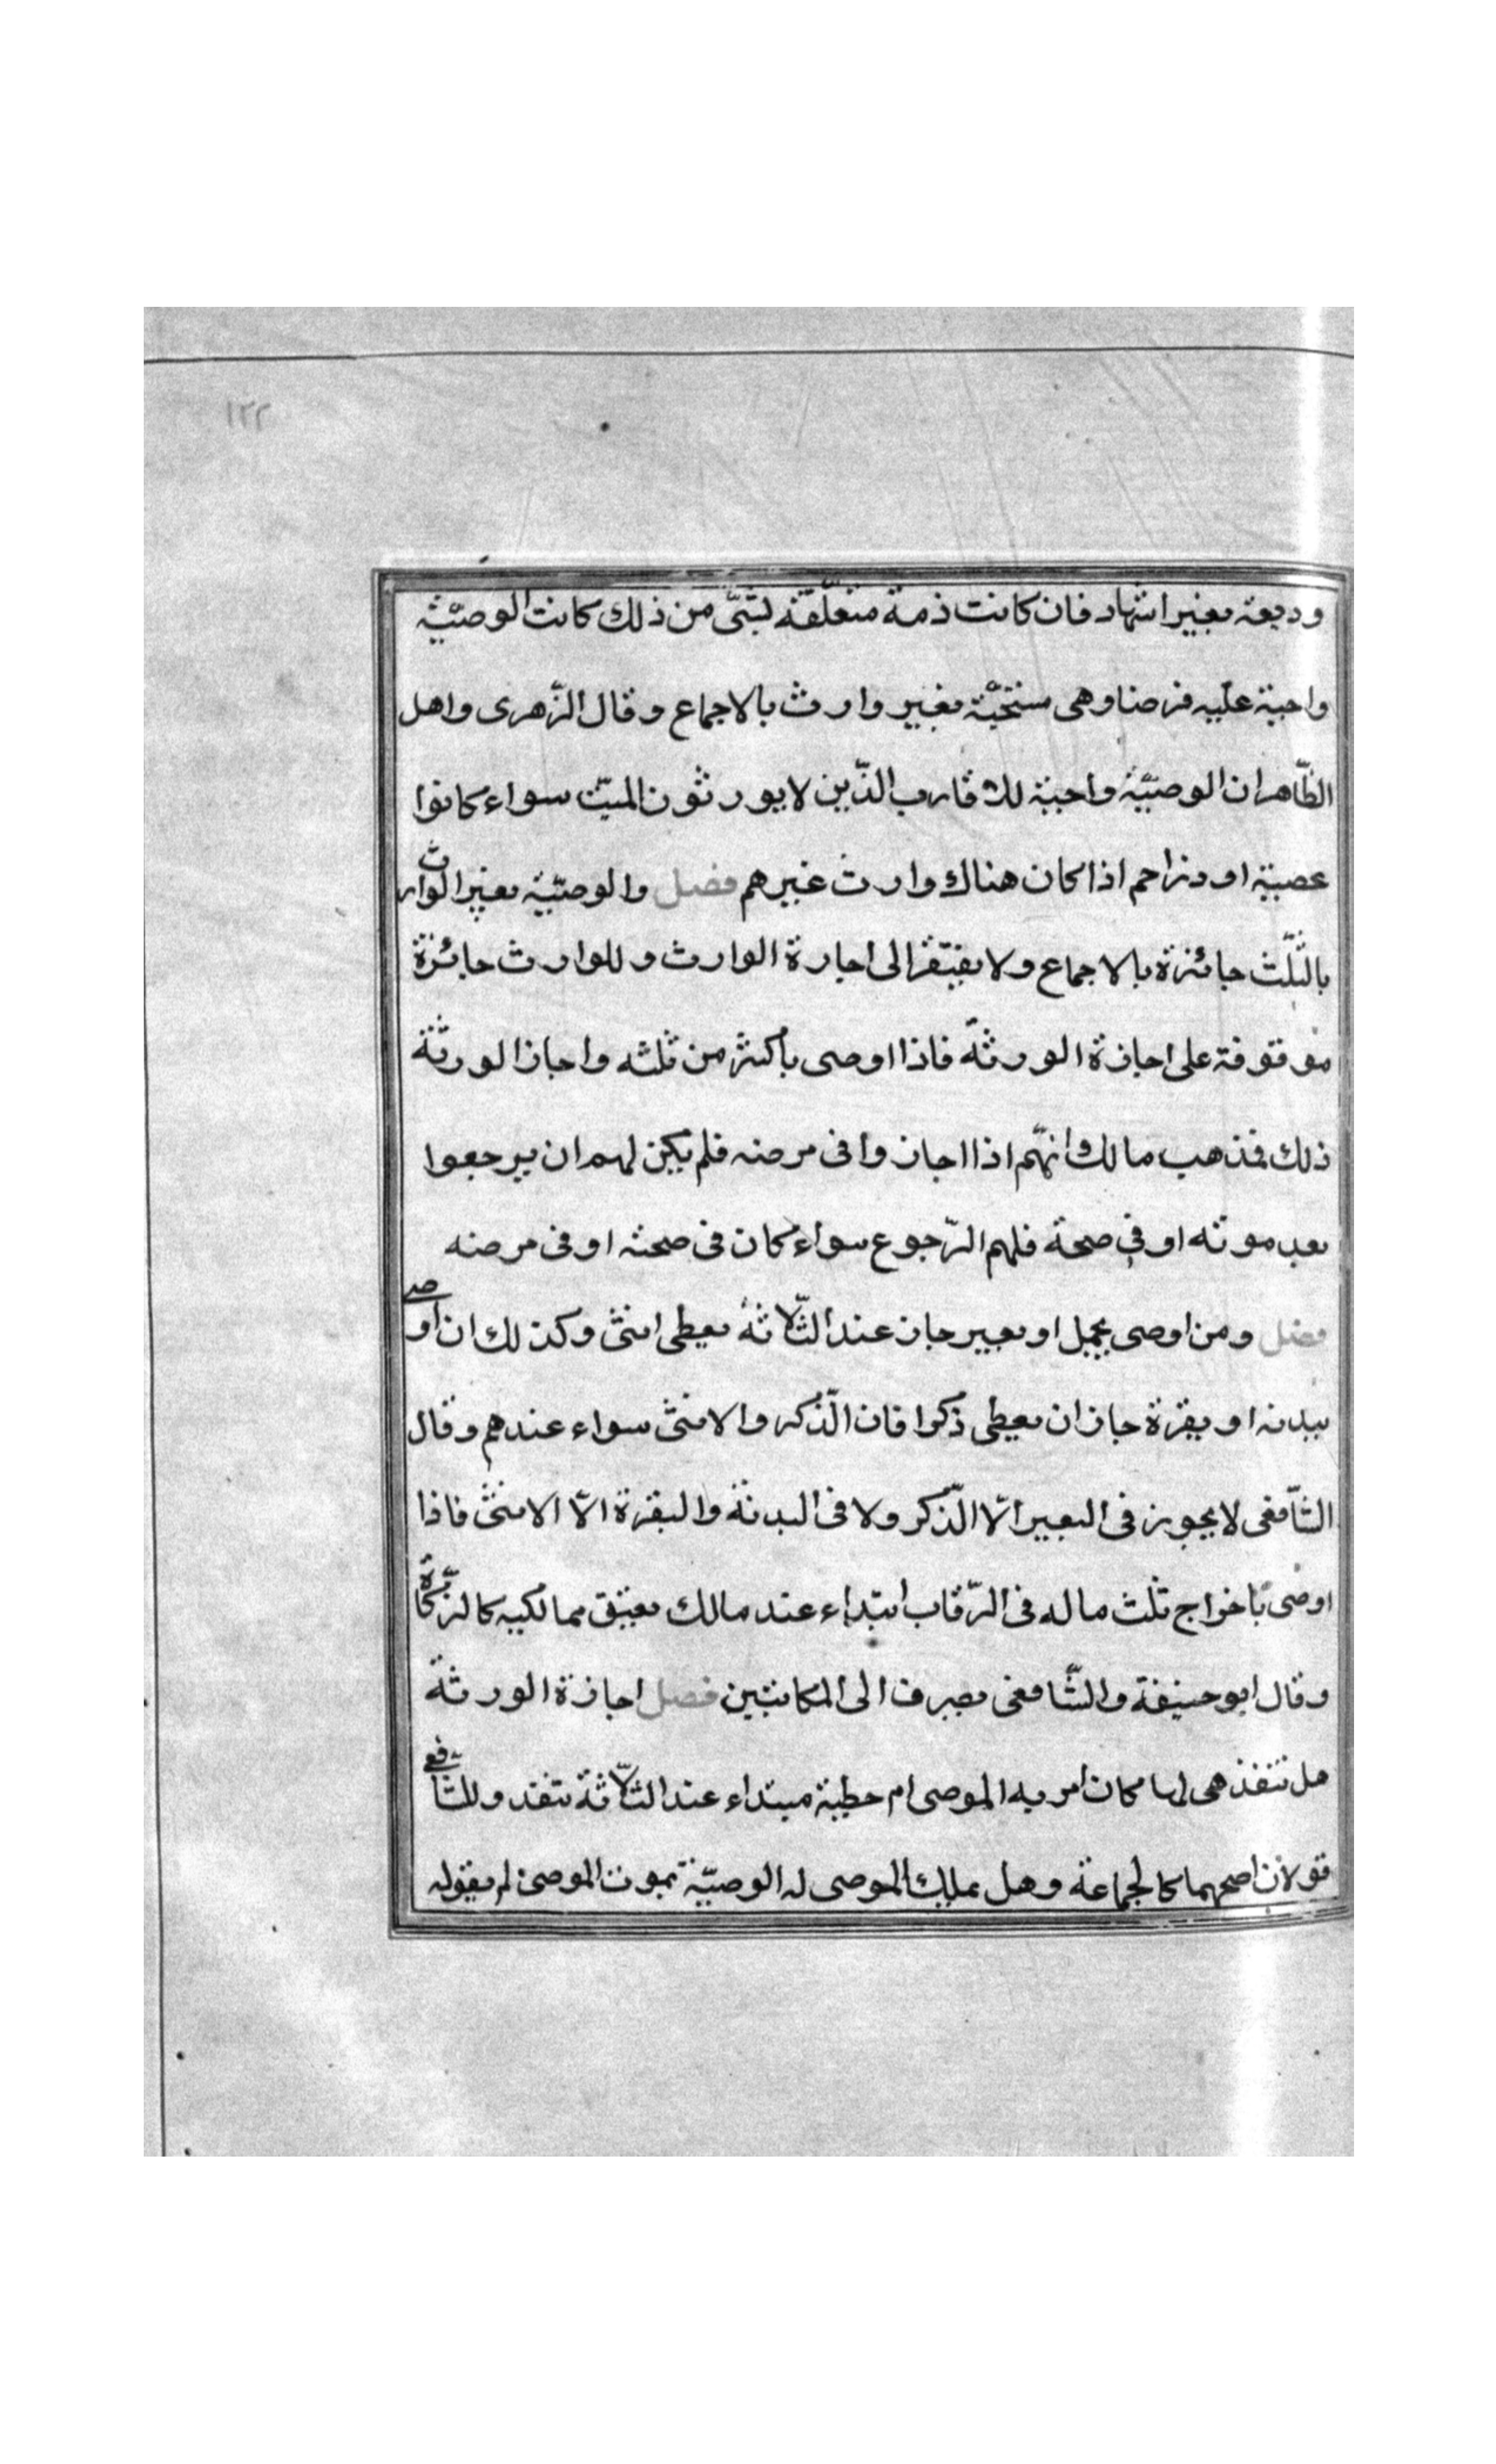 ١٢٢
وديعة بغير اشهاد فان كانت ذمة متعلّقة بشئ من ذلك كانت الوصيّة
واجبة عليه فرضا وهى مستحبّة بغير وارث بالاجماع وقال الزّهرى واهل
الظّاهر ان الوصيّة واجبة للاقارب الذّين لا يورثون الميّت سواء كانوا
عصبة او ذا رحم اذا كان هناك وارث غيرهم فصل والوصيّة بغير الوارث
بالثّلث جائزة بالاجماع ولا يفتقر الى اجارة الوارث وللوارث جائزة
موقوفة على اجازة الورثة فاذا اوصى باكثر من ثلثه واجاز الورثة
ذلك فذهب مالك وانهّم اذا اجازوا فى مرضه فلم يكن لهم ان يرجعوا
بعد موته او فى صحة فلهم الرّجوع سواء كان فى صحته او فى مرضه
فصل ومن اوصى بجمل او بعير جاز عند الثّلاثة يعطى انثى وكذلك ان اوصى
ببدنه او بقرة جاز ان يعطى ذكرا فان الذّكر والانثى سواء عندهم وقال
الشّافعى لا يجوز فى البعير الّا الذّكر ولا فى البدنة والبقرة الّا الانثى فاذا
اوصى باخراج ثلث ماله فى الرّقاب ابتداء عند مالك بعتق مماليكه كالزّكاة
وقال ابو حنيفة والشّافعى يصرف الى المكاتبين فصل اجازة الورثة
هل تنفذ هى لما كان امر به الموصى ام عطية مبتداء عند الثّلاثة تنفذ وللشّافعى
قولان اصحهما كالجماعة وهل يملك الموصى له الوصيّة بموت الموصى لم بقوله